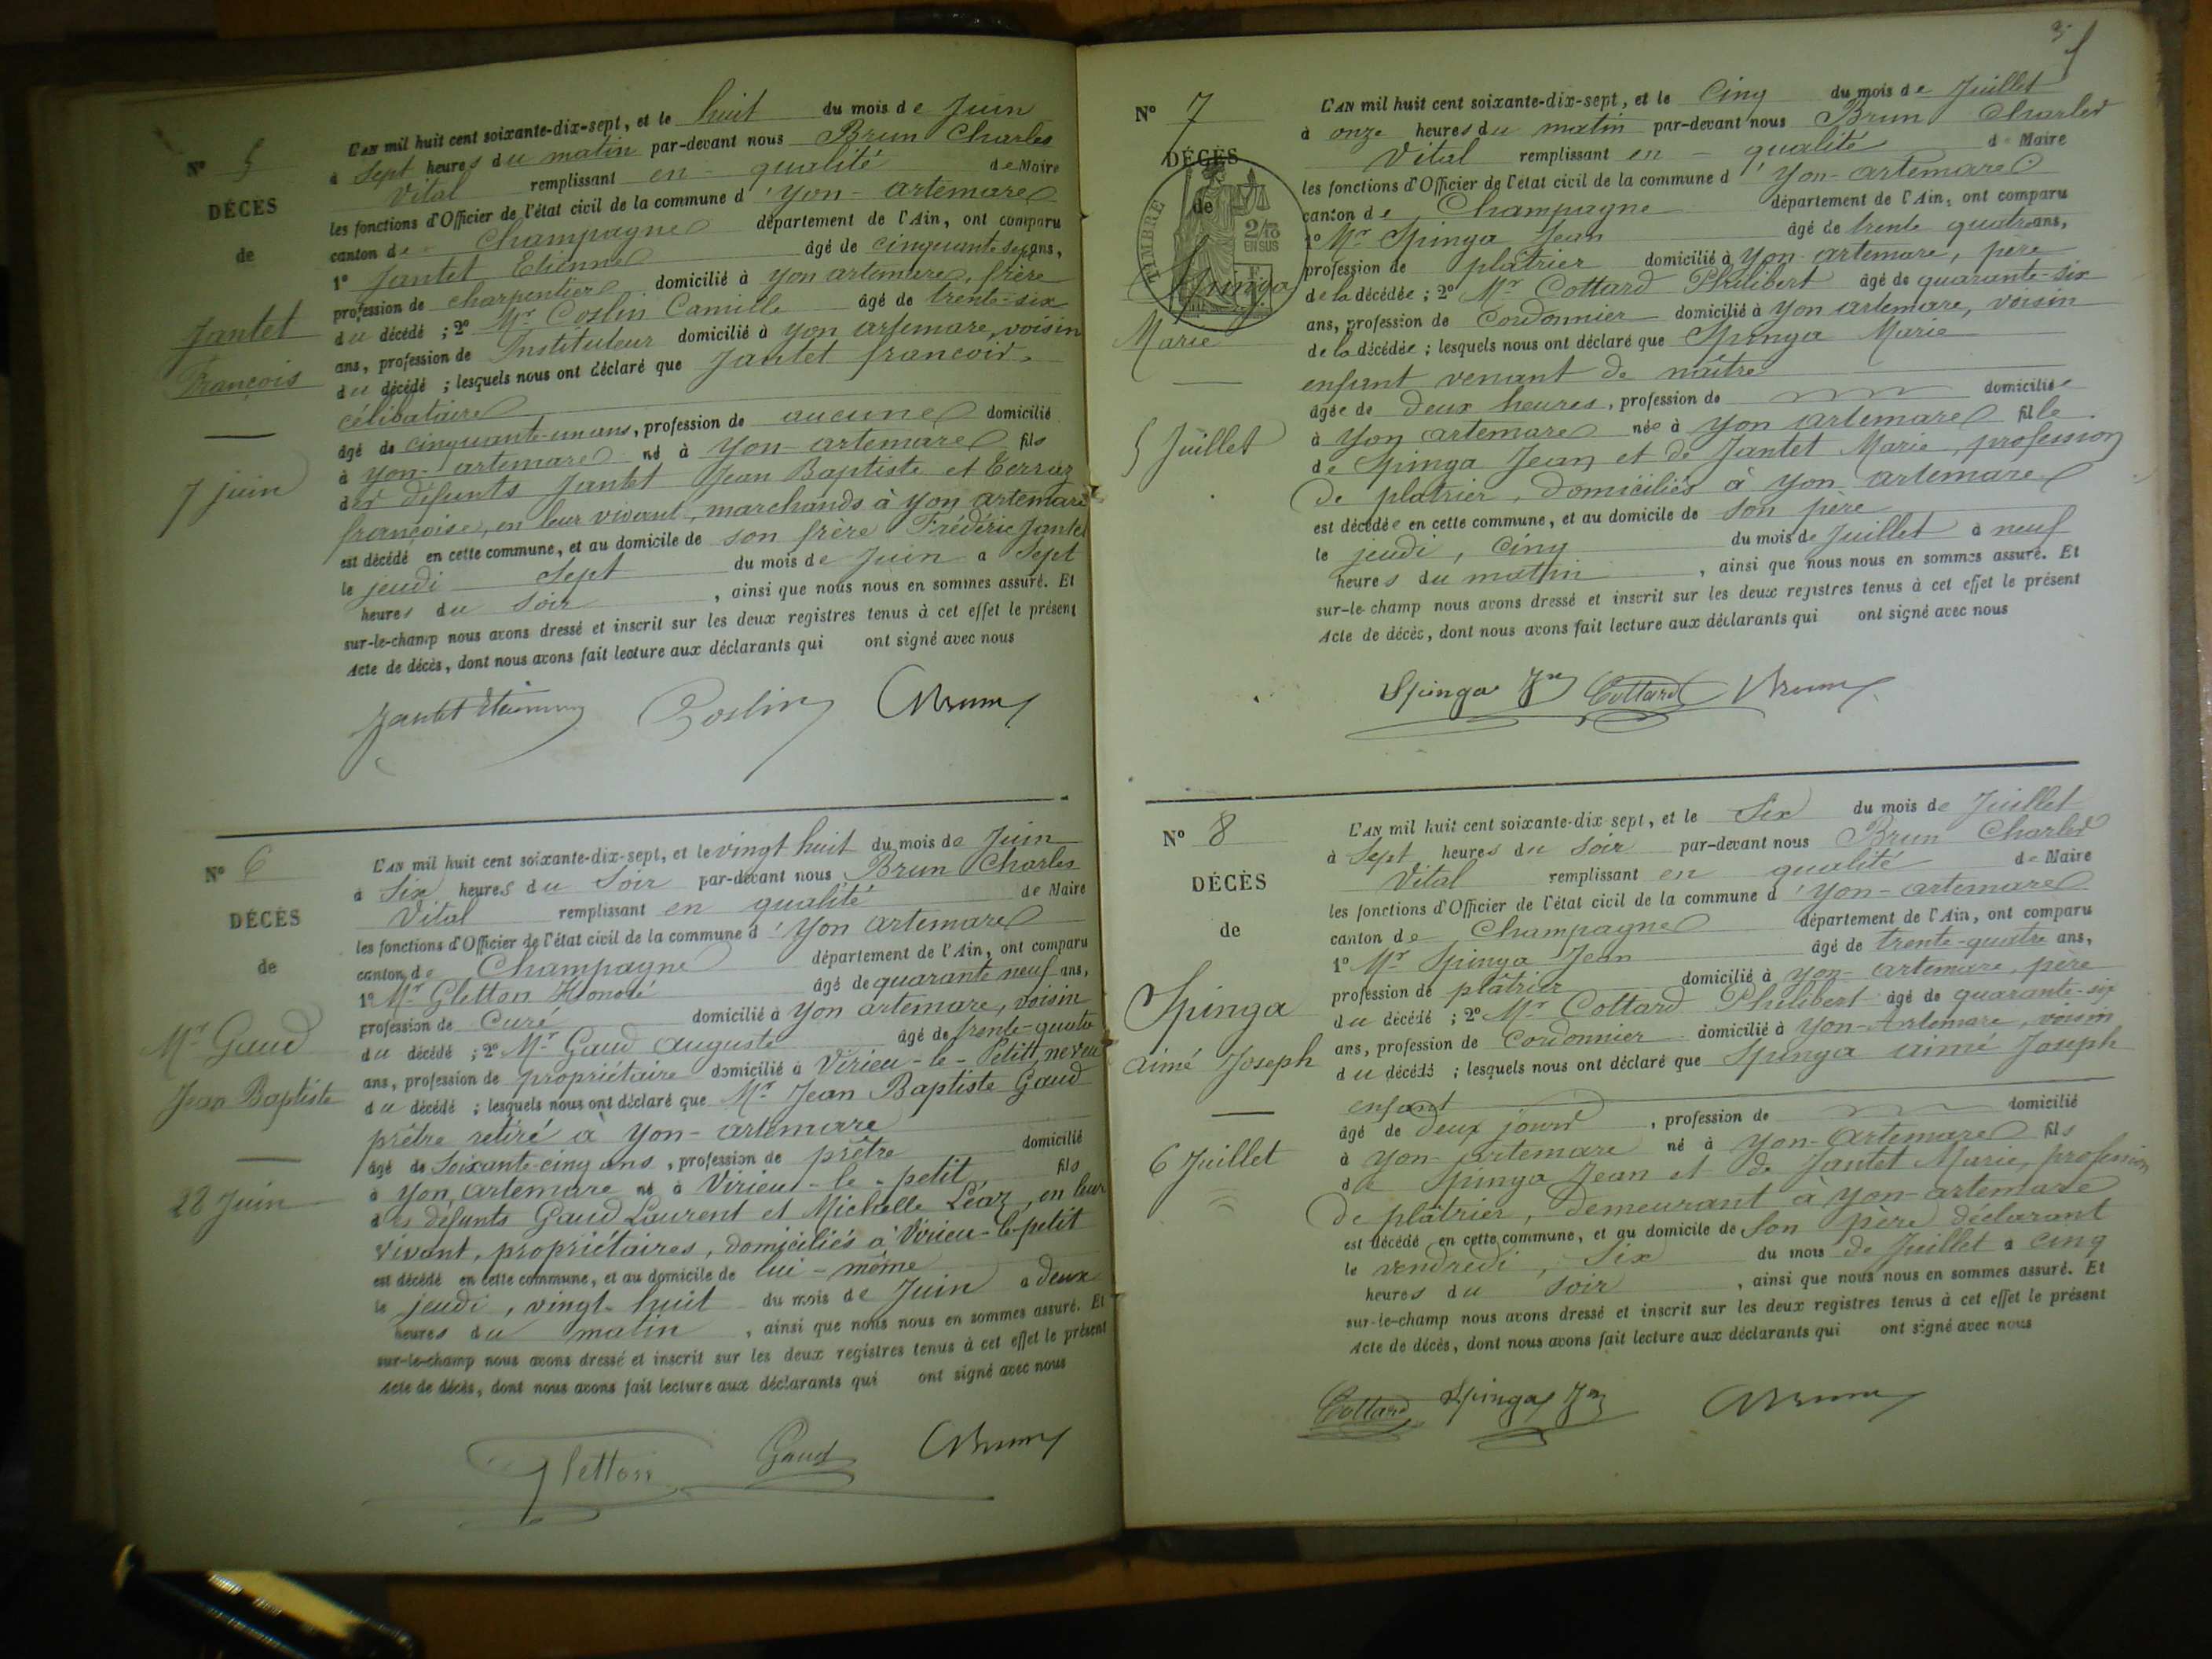 Nº 5
DÉCÈS
de
Jantet
François
7 juin
L'AN mil huit cent soixante-dix-sept, et le huit du mois de Juin
à Sept heures du matin par-devant nous Brun Charles
Vital remplissant en qualité de Maire
les fonctions d'Officier de l'état civil de la commune d'Yon-artemare
canton de Champagne département de l'Ain, ont comparu
1º Jantet Etienne âgé de cinquante six ans,
profession de charpentier domicilié à yon artemare, frère
du décédé ; 2º Mr Coslin Camille âgé de trente-six
ans, profession de Instituteur domicilié à yon artemare, voisin
du décédé ; lesquels nous ont déclaré que Jantet françois
célibataire
âgé de cinquante-un ans, profession de aucune domicilié
à yon-artemare né à yon-artemare fils
des défunts Jantet Jean Baptiste et
françoise, en leur vivant, marchands à yon artemare
est décédé en cette commune, et au domicile de son frère Frédéric Jantet
le jeudi Sept du mois de Juin à Sept
heures du Soir, ainsi que nous nous en sommes assuré. Et
sur-le-champ nous avons dressé et inscrit sur les deux registres tenus à cet effet le présent
Acte de décès, dont nous avons fait lecture aux déclarants qui ont signé avec nous
Jantet Etienne Coslin CBrun
Nº 6
DÉCÈS
de
Mr Gaud
Jean Baptiste
28 Juin
L'AN mil huit cent soixante-dix-sept, et le vingt huit du mois de Juin
à Six heures du Soir par-devant nous Brun Charles
Vital remplissant en qualité de Maire
les fonctions d'Officier de l'état civil de la commune d'Yon artemare
canton de Champagne département de l'Ain, ont comparu
1º Mr Gletton Honoré âgé de quarante neuf ans,
profession de Curé domicilié à yon artemare, voisin
du décédé ; 2º Mr Gaud auguste âgé de trente-quatre
ans, profession de propriétaire domicilié à Virieu-le-Petit, neveu
du décédé ; lesquels nous ont déclaré que Mr Jean Baptiste Gaud
prêtre retiré à yon-artemare
âgé de Soixante-cinq ans, profession de prêtre domicilié
à yon, artemare né à Virieu-le-petit, fils
des défunts Gaud Laurent et Michelle Léaz, en leur
vivant, propriétaires, domiciliés à Virieu-le-petit
est décédé en cette commune, et au domicile de lui-même
le jeudi, vingt-huit du mois de Juin à deux
heures du matin, ainsi que nous nous en sommes assuré. Et
sur-le-champ nous avons dressé et inscrit sur les deux registres tenus à cet effet le présent
Acte de décès, dont nous avons fait lecture aux déclarants qui ont signé avec nous
Gletton Gaud CBrun
3
Nº 7
DÉCÈS
de
TIMBRE
2/10
EN SUS
Spinga
Marie
5 Juillet
L'AN mil huit cent soixante-dix-sept, et le Cinq du mois de Juillet
à onze heures du matin par-devant nous Brun Charles
Vital remplissant en qualité de Maire
les fonctions d'Officier de l'état civil de la commune d'Yon-artemare
canton de Champagne département de l'Ain, ont comparu
1º Mr Spinga Jean âgé de trente quatre ans,
profession de plâtrier domicilié à Yon-artemare, père
de la décédée ; 2º Mr Cottard Philibert âgé de quarante-six
ans, profession de Cordonnier domicilié à Yon artemare, voisin
de la décédée ; lesquels nous ont déclaré que Spinga Marie
enfant venant de naître
âgée de deux heures, profession de domiciliée
à Yon artemare née à Yon artemare fille
de Spinga Jean et de Jantet Marie, profession
de platrier, domiciliés à yon artemare
est décédée en cette commune, et au domicile de son père
le jeudi, Cinq du mois de Juillet à neuf
heures du matin, ainsi que nous nous en sommes assuré. Et
sur-le-champ nous avons dressé et inscrit sur les deux registres tenus à cet effet le présent
Acte de décès, dont nous avons fait lecture aux déclarants qui ont signé avec nous
Spinga Jn Cottard CBrun
Nº 8
DÉCÈS
de
Spinga
aimé Joseph
6 Juillet
L'AN mil huit cent soixante-dix-sept, et le Six du mois de Juillet
à Sept heures du Soir par-devant nous Brun Charles
Vital remplissant en qualité de Maire
les fonctions d'Officier de l'état civil de la commune d'Yon-artemare
canton de Champagne département de l'Ain, ont comparu
1º Mr Spinga Jean âgé de trente-quatre ans,
profession de plâtrier domicilié à yon-artemare, père
du décédé ; 2º Mr Cottard Philibert âgé de quarante-six
ans, profession de Cordonnier domicilié à Yon-Artemare, voisin
du décédé ; lesquels nous ont déclaré que Spinga aimé Joseph
enfant
âgé de deux jours, profession de domicilié
à Yon-Artemare né à Yon-Artemare fils
de Spinga Jean et de Jantet Marie, profession
de plâtrier, demeurant à Yon-artemare
est décédé en cette commune, et au domicile de Son père déclarant
le vendredi, Six du mois de Juillet à cinq
heures du Soir, ainsi que nous nous en sommes assuré. Et
sur-le-champ nous avons dressé et inscrit sur les deux registres tenus à cet effet le présent
Acte de décès, dont nous avons fait lecture aux déclarants qui ont signé avec nous
Cottard Spinga Jn CBrun